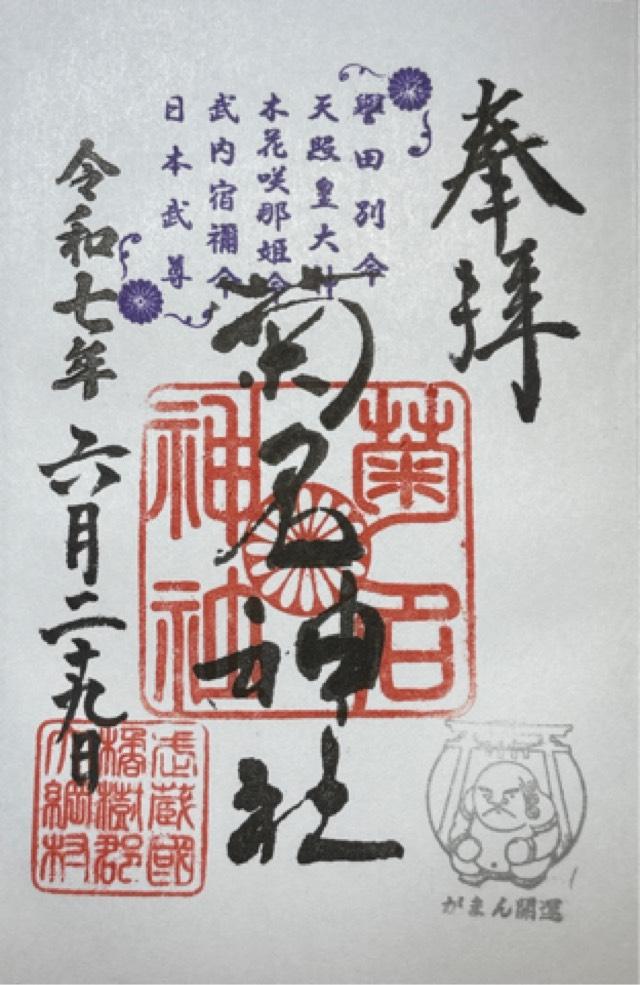 奉拝
譽田別命
天照皇大神
木花咲耶姫命
武内宿禰命
日本武尊
菊名神社
菊名
神社
令和七年六月二十九日
武蔵國
橘樹郡
大綱村
がまん開運